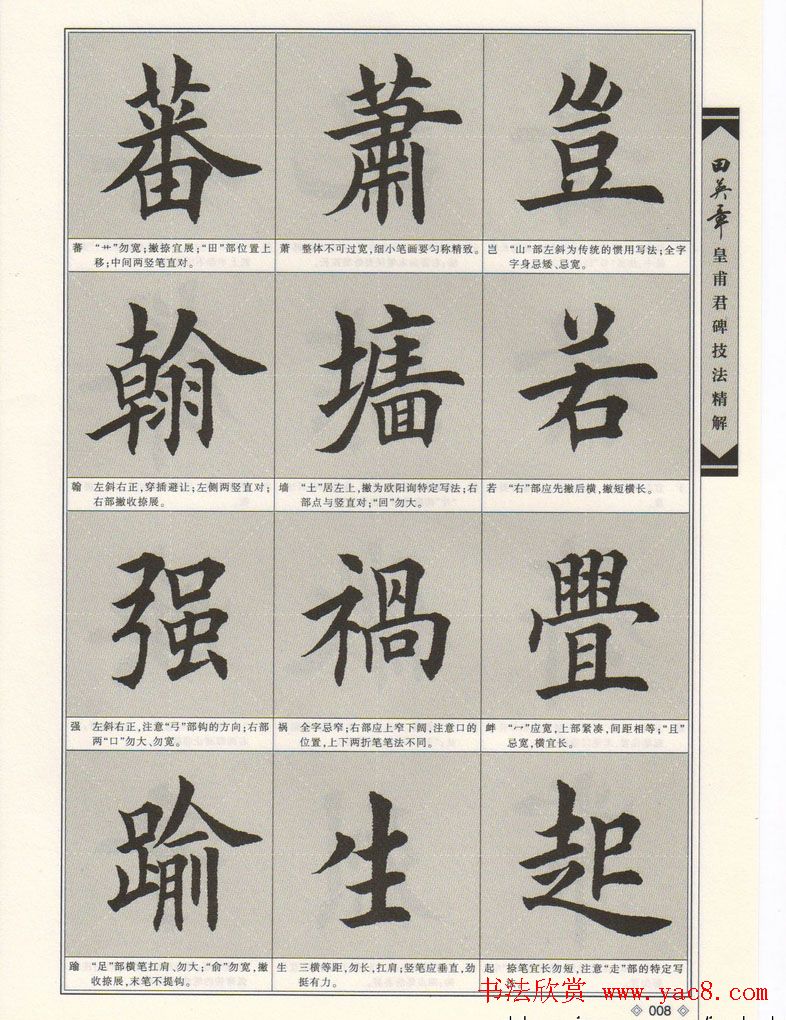 蕃 蕭 豈
蕃 “艹”勿宽;撇捺宜展;“田”部位置上
移;中间两竖笔直对。
萧 整体不可过宽,细小笔画要匀称精致。
岂 “山”部左斜为传统的惯用写法;全字
字身忌矮、忌宽。
翰 墻 若
翰 左斜右正,穿插避让;左侧两竖直对;
右部撇收捺展。
墙 “土”居左上,撇为欧阳询特定写法;右
部点与竖直对;“回”勿大。
若 “右”部应先撇后横,撇短横长。
强 禍 舋
强 左斜右正,注意“弓”部钩的方向;右部
两“口”勿大、勿宽。
祸 全字忌窄;右部应上窄下阔,注意口的
位置,上下两折笔笔法不同。
衅 “冖”应宽,上部紧凑,间距相等;“且”
忌宽,横宜长。
踰 生 起
踰 “足”部横笔扛肩、勿大;“俞”勿宽,撇
收捺展,末笔不提钩。
生 三横等距,勿长,扛肩;竖笔应垂直,劲
挺有力。
起 捺笔宜长勿短,注意“走”部的特定写
法。
田英章
皇甫君碑技法精解
书法欣赏 www.yac8.com
008